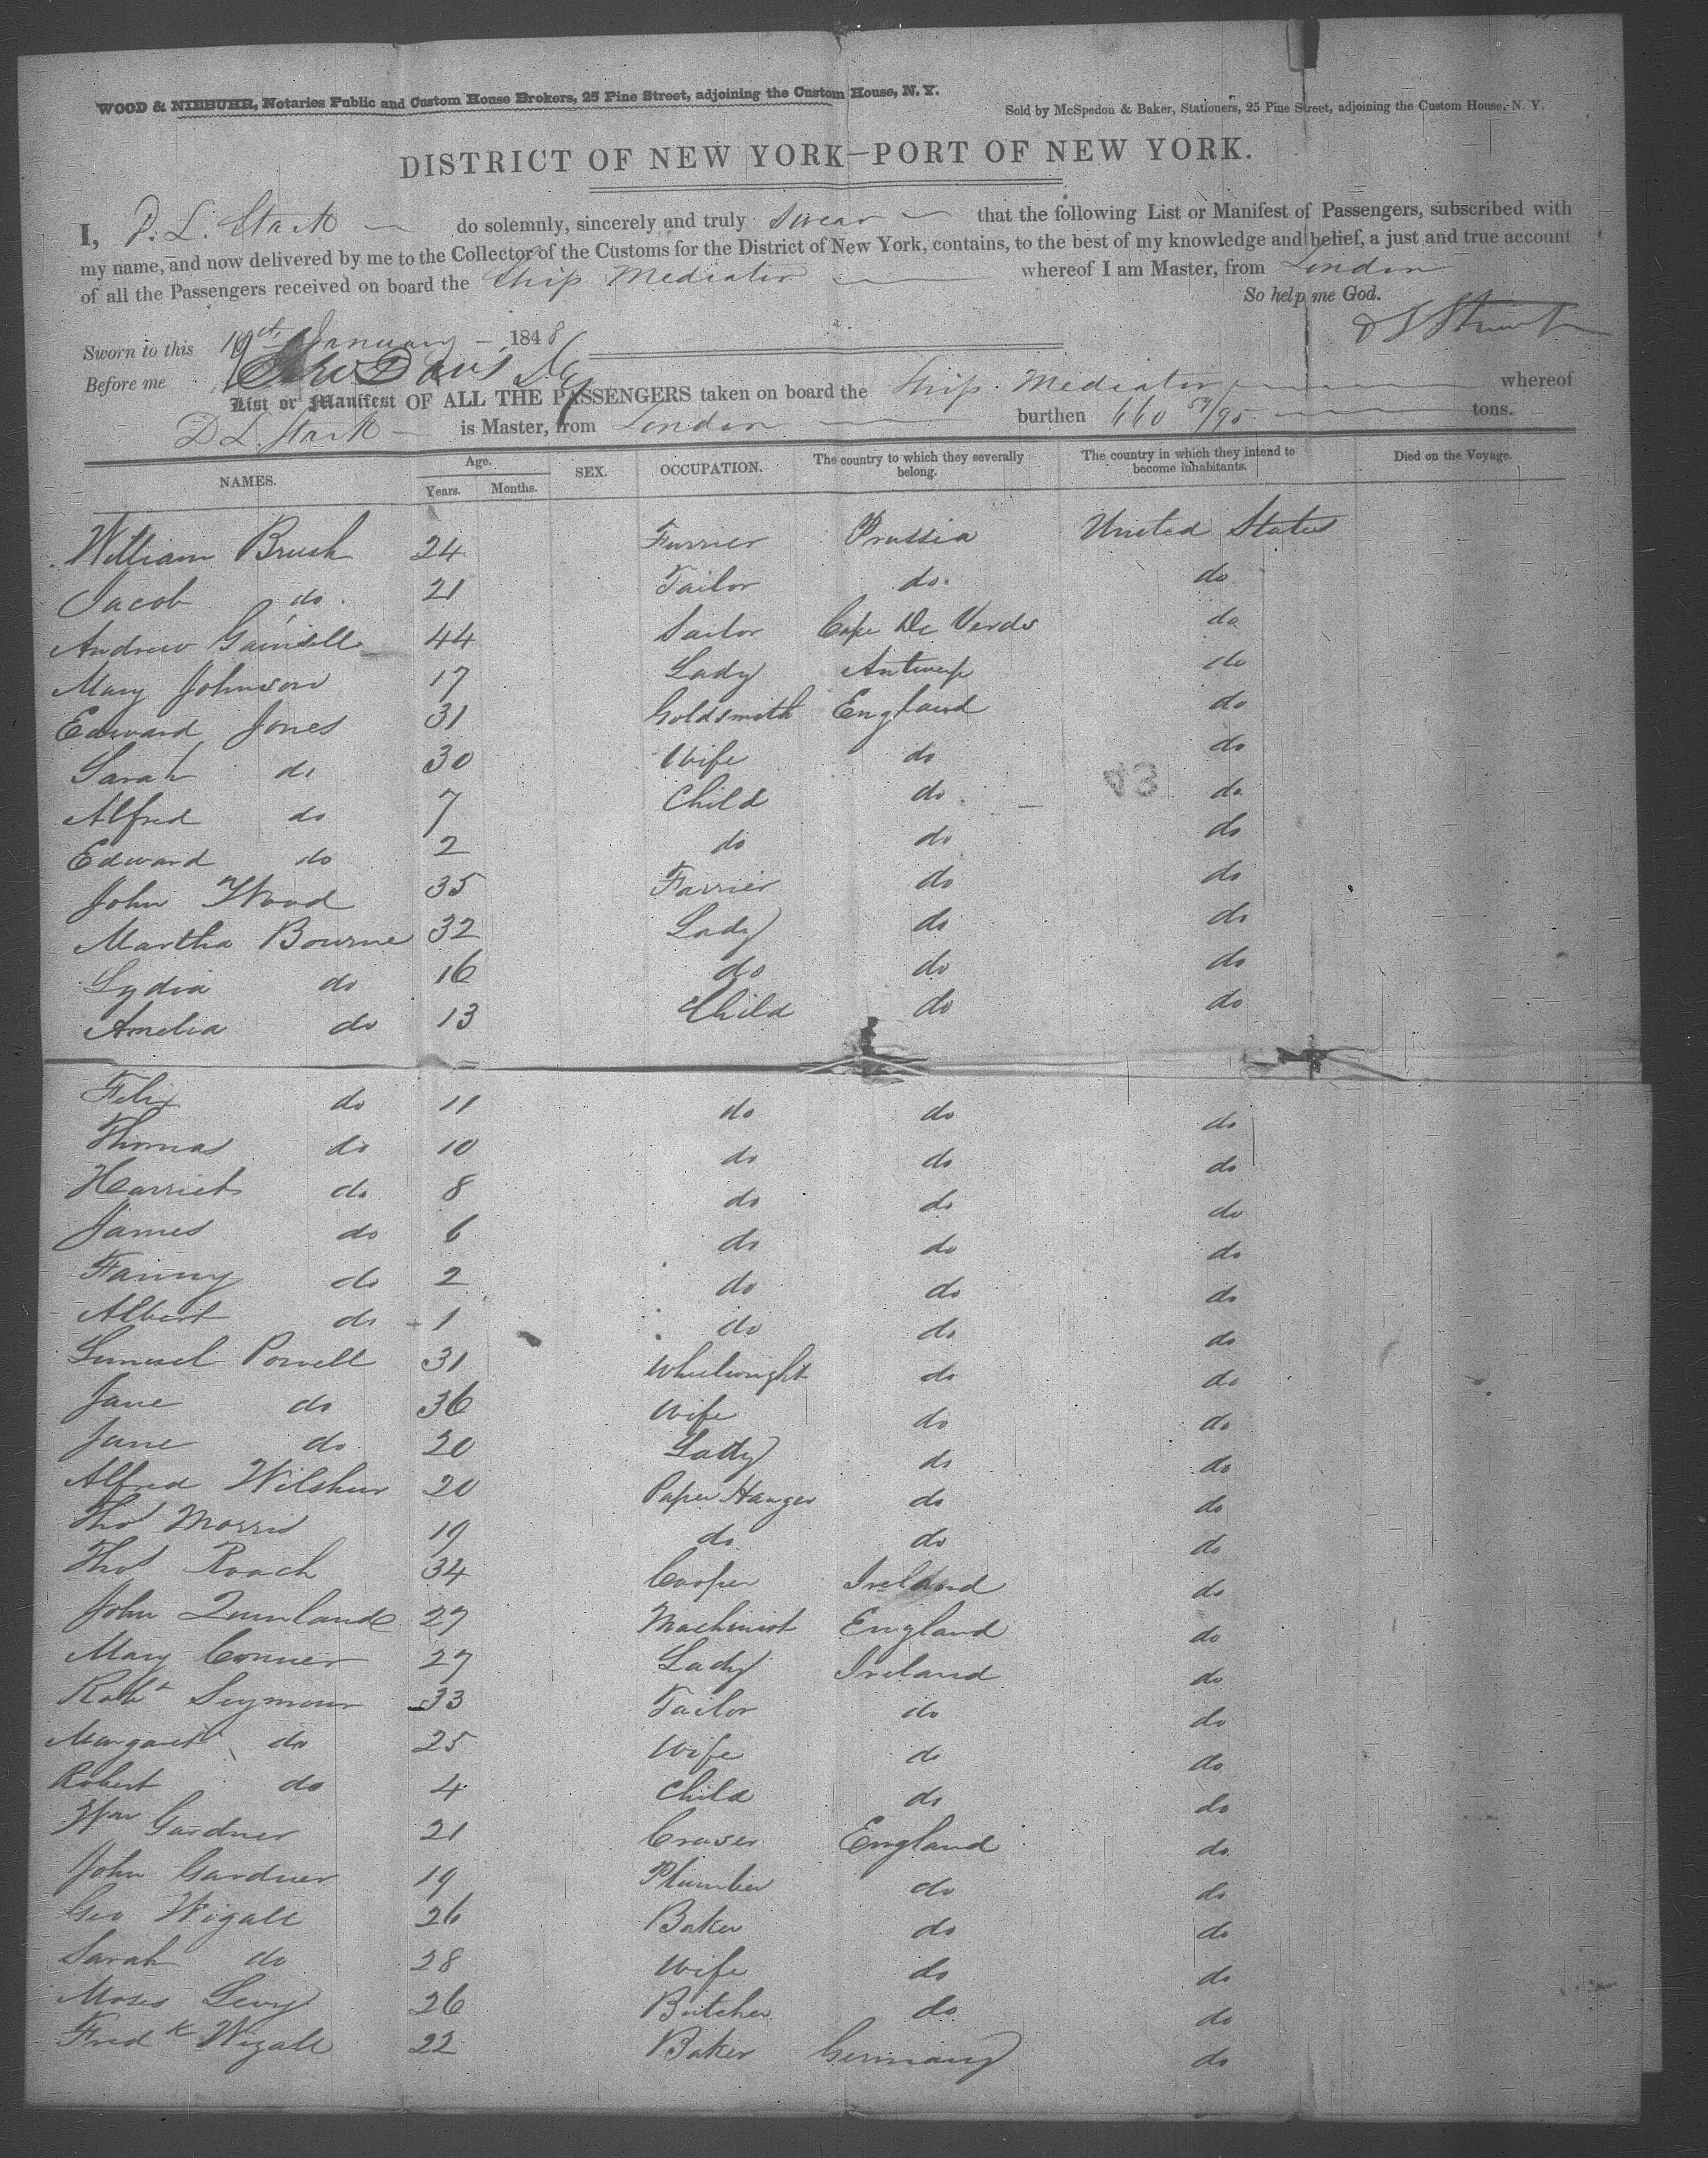 WOOD & NIEBUHR, Notaries Public and Custom House Brokers, 25 Pine Street, adjoining the Custom House, N. Y.
Sold by McSpedon & Baker, Stationers, 25 Pine Street, adjoining the Custom House, N. Y.
DISTRICT OF NEW YORK—PORT OF NEW YORK.
I, D. L. Stark do solemnly, sincerely and truly swear that the following List or Manifest of Passengers, subscribed with
my name, and now delivered by me to the Collector of the Customs for the District of New York, contains, to the best of my knowledge and belief, a just and true account
of all the Passengers received on board the Ship Mediator whereof I am Master, from London
So help me God.
Sworn to this 19th January 1848
Before me
List or Manifest OF ALL THE PASSENGERS taken on board the Ship Mediator whereof
D L. Stark is Master, from London burthen 660 59/95 tons.
NAMES. Age. Years. Months. SEX. OCCUPATION. The country to which they severally belong. The country in which they intend to become inhabitants. Died on the Voyage.
William Brush 24 Furrier Prussia United States
Jacob do 21 Tailor do. do
Andrew 44 Sailor Cape De Verds do
Mary Johnson 17 Lady Antwerp do
Edward Jones 31 Goldsmith England do
Sarah do 30 Wife do do
Alfred do 7 Child do do
Edward do 2 do do do
John Wood 35 Farrier do do
Martha Bourne 32 Lady do do
Lydia do 16 do do do
Amelia do 13 Child do do
Felix do 11 do do do
Thomas do 10 do do do
Harriet do 8 do do do
James do 6 do do do
Fanny do 2 do do do
Albert do 1 do do do
Lemuel Powell 31 Wheelwright do do
Jane do 36 Wife do do
Jane do 20 Lady do do
Alfred Wilshur 20 Paper Hanger do do
Thos Morris 19 do do do
Thos Roach 34 Cooper Ireland do
John Quinlande 27 Machinist England do
Mary Conner 27 Lady Ireland do
Robt Seymour 33 Tailor do do
Margaret do 25 Wife do do
Robert do 4 Child do do
Wm Gardner 21 England do
John Gardner 19 Plumber do do
Geo Wigall 26 Baker do do
Sarah do 28 Wife do do
Moses Levy 26 Butcher do do
Fredk Wigall 22 Baker Germany do